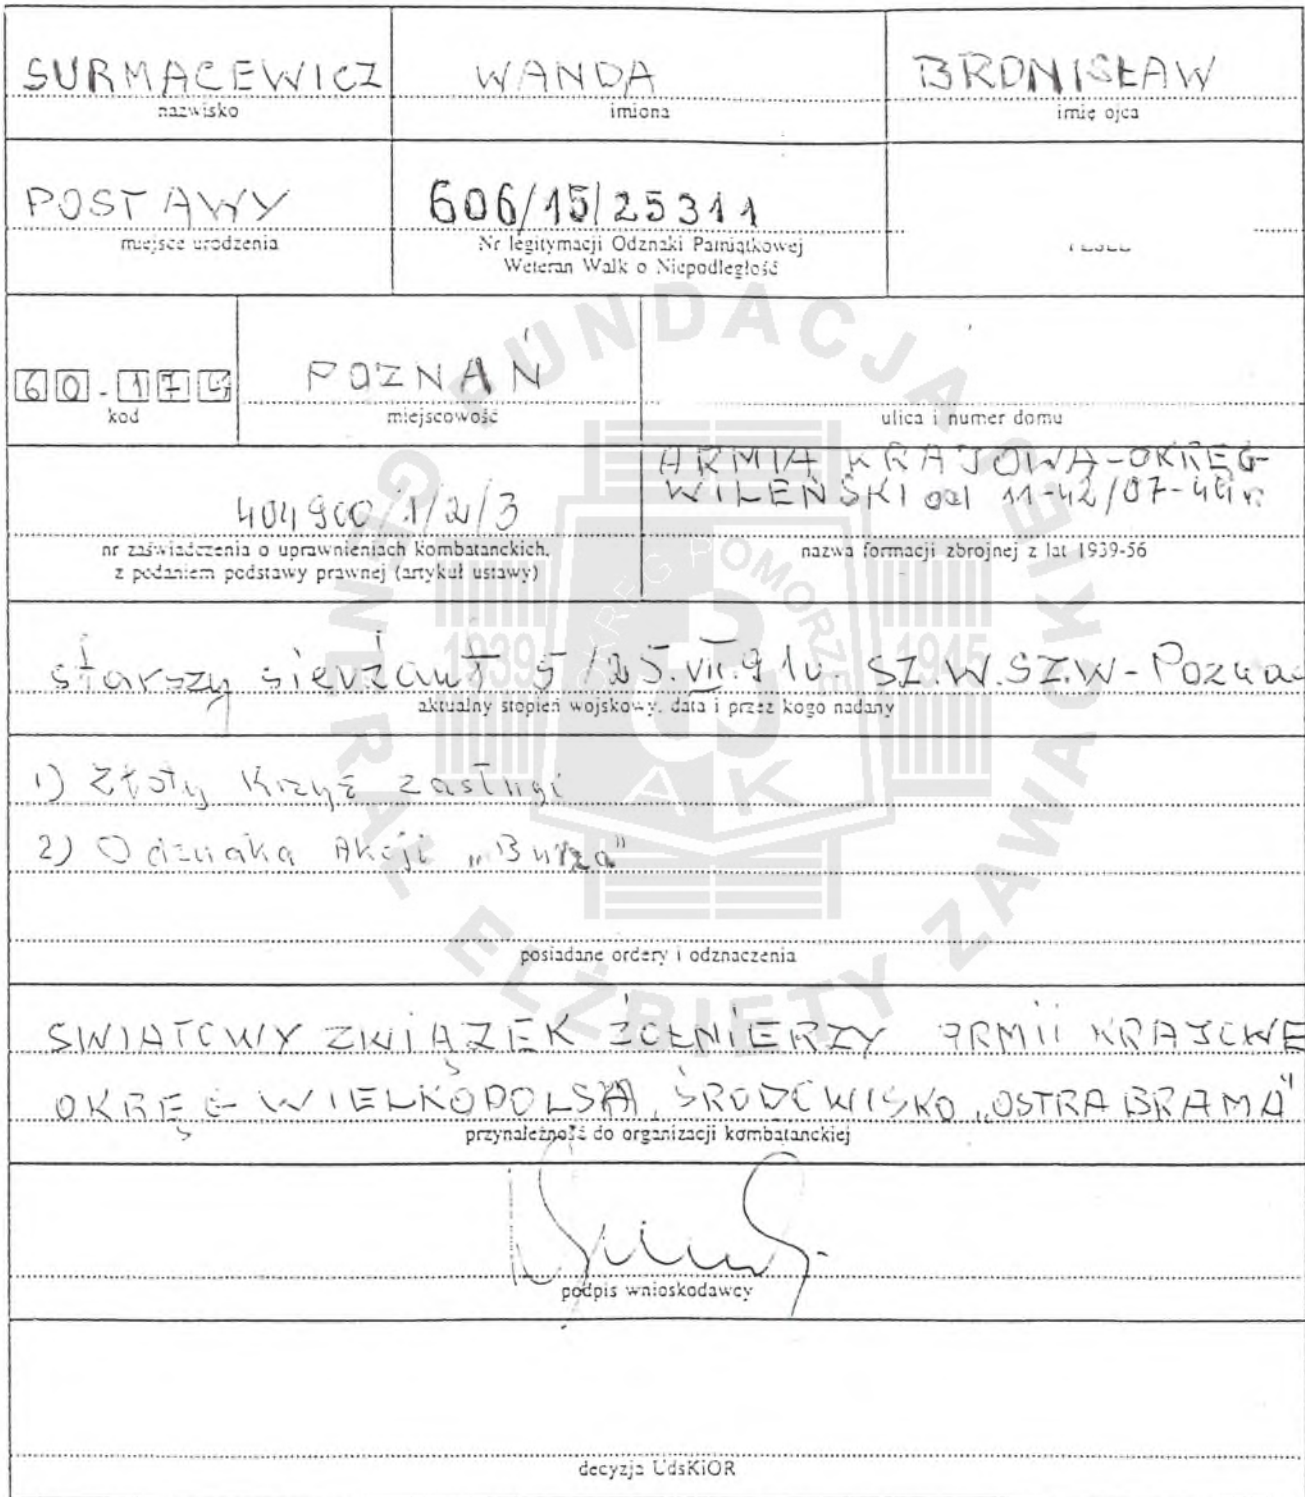 SURMACEWICZ WANDA BRONISŁAW
nazwisko imiona imię ojca
POSTAWY 606/15/25311
miejsce urodzenia Nr legitymacji Odznaki Pamiątkowej
Weteran Walk o Niepodległość
60-174 POZNAŃ
kod miejscowość ulica i numer domu
ARMIA KRAJOWA-OKRĘG
WILEŃSKI od 11-42/07-44r.
404900/1/2/3
nr zaświadczenia o uprawnieniach kombatanckich,
z podaniem podstawy prawnej (artykuł ustawy)
nazwa formacji zbrojnej z lat 1939-56
starszy sierżant 5/25.VII.91r. SZ.W.SZ.W-Poznań
aktualny stopień wojskowy, data i przez kogo nadany
1) Złoty Krzyż zasługi
2) Odznaka Akcji „Burza"
posiadane ordery i odznaczenia
SWIATOWY ZWIĄZEK ŻOŁNIERZY ARMII KRAJOWE
OKRĘG WIELKOPOLSKA, ŚRODOWISKO „OSTRA BRAMA"
przynależność do organizacji kombatanckiej
podpis wnioskodawcy
decyzja UdsKiOR
FUNDACJA GENERAŁ ELŻBIETY ZAWACKIEJ
OKRĘG POMORZE
1939 1945
AK